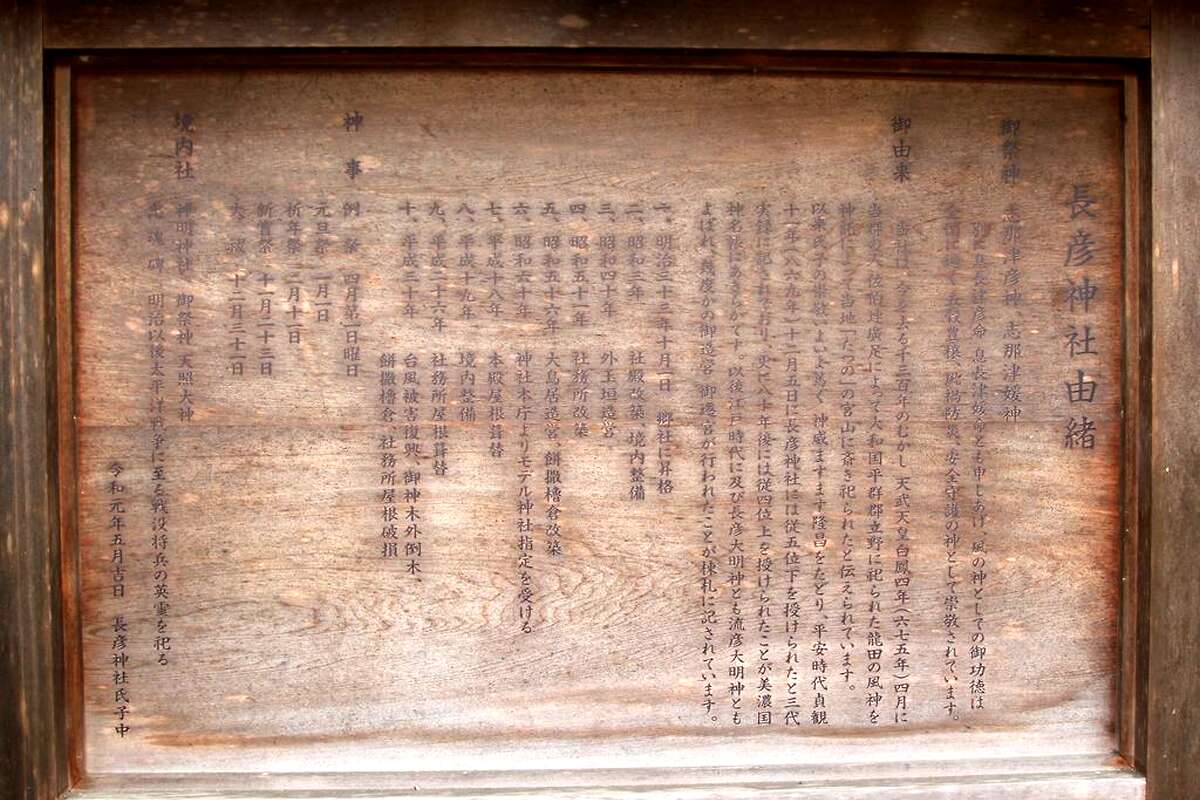 長彦神社由緒
御祭神 志那津彦神、志那津媛神
息長津彦命 息長津媛命とも申しあげ 風の神としての御功徳は
五穀豊穣、 防災、安全守護の神として崇敬されています。
御由来 当社は 去る千三百年のむかし 天武天皇白鳳四年(六七五年)四月に
当郡の人 佐伯連廣足によって大和国平群郡立野に祀られた龍田の風神を
神託によって当地「たつの」の宮山に斎き祀られたと伝えられています。
以来氏子の崇敬いよいよ篤く 神威ますます隆昌をたどり、平安時代貞観
十一年(八六九年)十二月五日に長彦神社には従五位下を授けられたと三代
実録に記されており、更に八十年後には従四位上を授けられたことが美濃国
神名帳にあきらかです。以後江戸時代に及び長彦大明神とも流彦大明神とも
よばれ 幾度かの御造営 御遷宮が行われたことが棟札に記されています。
一、明治三十三年十月一日 郷社に昇格
二、昭和三年 社殿改築、境内整備
三、昭和四十年 外玉垣造営
四、昭和五十年 社務所改築
五、昭和五十六年 大鳥居造営、餅撒櫓倉改築
六、昭和六十年 神社本庁よりモデル神社指定を受ける
七、平成十八年 本殿屋根葺替
八、平成十九年 境内整備
九、平成二十六年 社務所屋根葺替
十、平成三十年 台風被害復興、御神木外倒木、
餅撒櫓倉、社務所屋根破損
神事 例祭 四月第一日曜日
元旦祭 一月一日
祈年祭 二月十一日
新嘗祭 十一月二十三日
大祓 十二月三十一日
境内社 神明神社 御祭神 天照大神
忠魂碑 明治以後太平洋戦争に至る戦没将兵の英霊を祀る
令和元年五月吉日 長彦神社氏子中